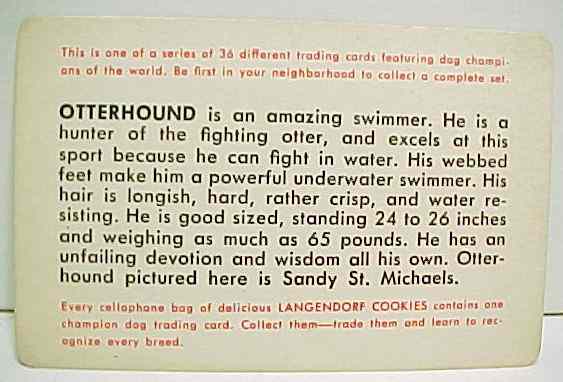 This is one of a series of 36 different trading cards featuring dog champi-
ons of the world. Be first in your neighborhood to collect a complete set.
OTTERHOUND is an amazing swimmer. He is a
hunter of the fighting otter, and excels at this
sport because he can fight in water. His webbed
feet make him a powerful underwater swimmer. His
hair is longish, hard, rather crisp, and water re-
sisting. He is good sized, standing 24 to 26 inches
and weighing as much as 65 pounds. He has an
unfailing devotion and wisdom all his own. Otter-
hound pictured here is Sandy St. Michaels.
Every cellophane bag of delicious LANGENDORF COOKIES contains one
champion dog trading card. Collect them—trade them and learn to rec-
ognize every breed.